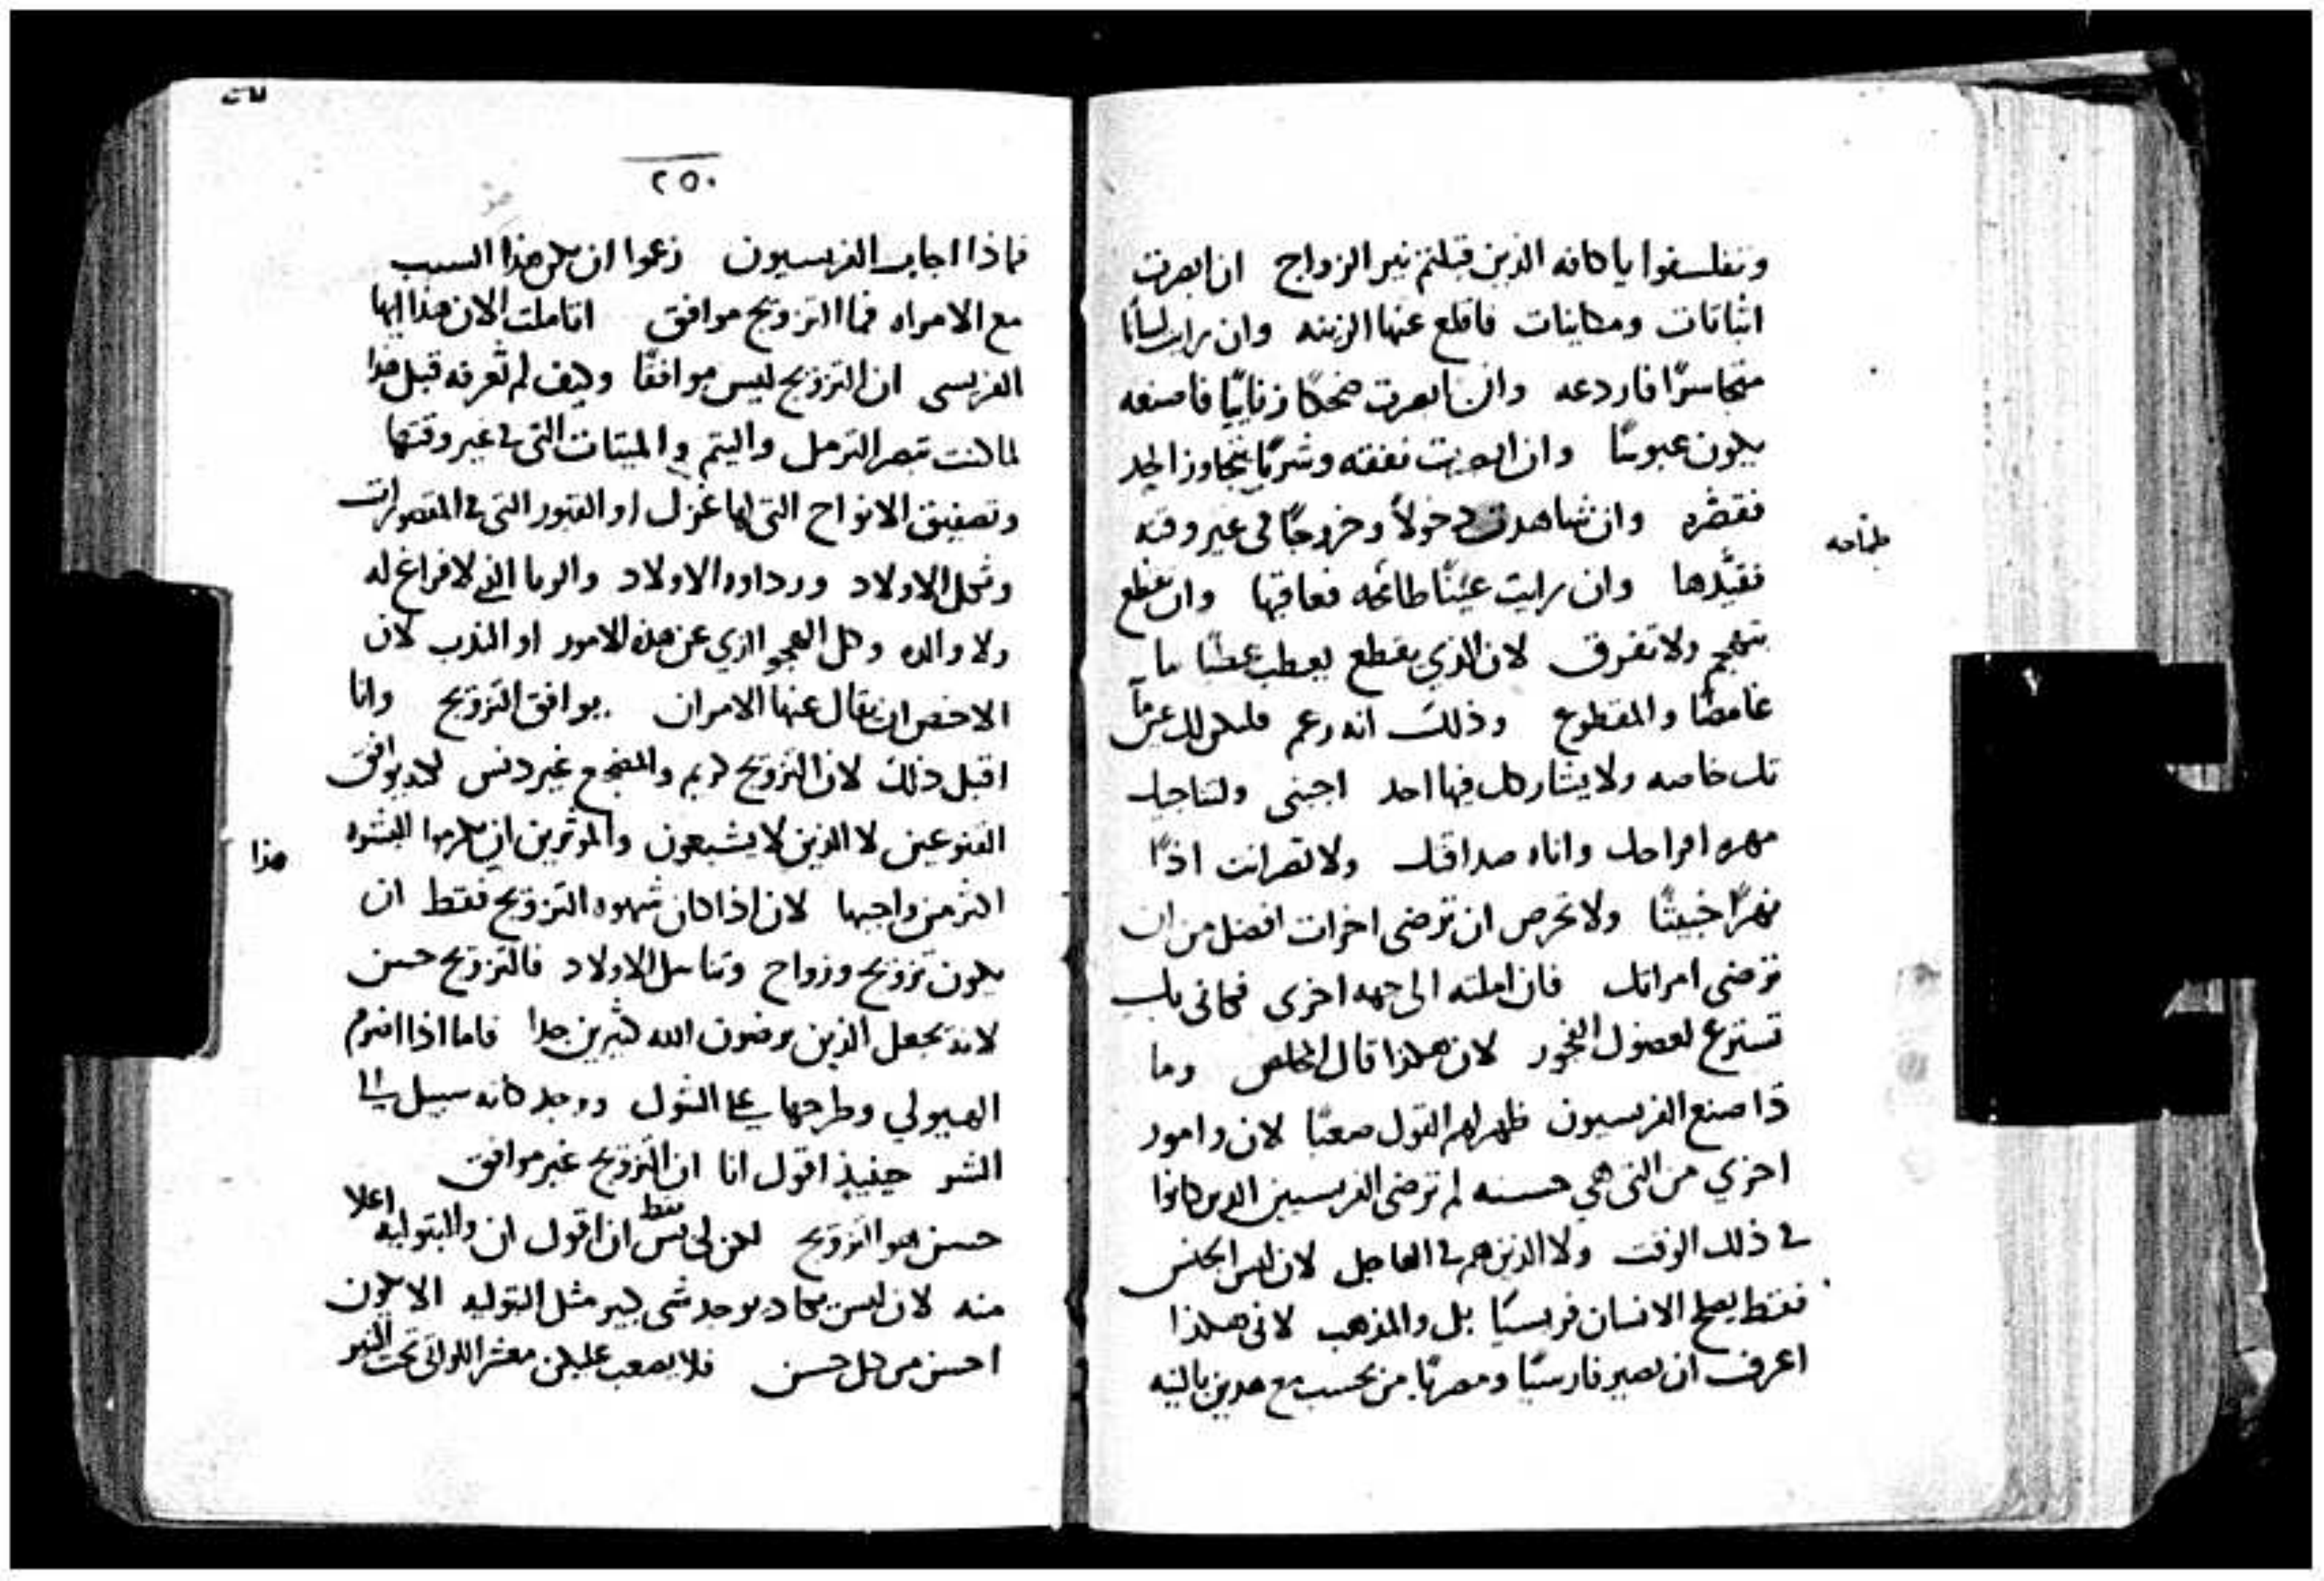 وتفلسفوا ياكافه الذين قبلتم نير الزواج ان ابصرت
اتباقات ومكاينات فاقلع عنها الزينه وان رايت لسانًا
متجاسرًا فاردعه وان ابصرت ضحكًا زنايًيا فاصنعه
يكون عبوسًا وان ابصرت نفقه وشربًا يتجاوز الحد
فقصّره وان شاهدت دخولاً وخروجًا في غير وقته
طماحه
فقيّدها وان رايت عينًا طائحه فعاقبها وان تقطع
بتهجم ولا تفرق لان الذي يقطع يعطب عطبًا ما
غامضًا والمقطوع وذلك انه زعم فليكن لك عين ما
تك خاصه ولا يشاركك فيها احد اجنبي ولتناجيك
مهره افراحك واناه صداقتك ولا تصر انت اذًا
نهرًا خبيثًا ولا تحرص ان ترضى اخرات افضل من ان
ترضى امراتك فان املته الى جهه اخرى فكاني بك
تسترع لعضوك الفجور لان هكذا قال المخلص وما
ذا صنع الفريسيون ظهر لهم القول صعبًا لان وامور
اخري من التي هي حسنه لم ترضى الفريسيين الدين كانوا
في ذلك الوقت ولا الذين هم في العاجل لان ليس الجنس
فقط يصلح الانسان فريسيًا بل والمذهب لاني هكذا
اعرف ان يصير فارسيًا ومصريًا من يحسب مع هدين بالنيه
٢٥٠
فماذا اجاب الفريسيون زعموا ان يكن هذا السبب
مع الامراه فما التزويج موافق اتاملت الان هذا ايها
الفريسى ان التزويج ليس موافقًا وكيف لم تعرفه قبل هذا
لما كنت تبصر الترمل واليتم والميتات التي في غير وقتها
وتصفيق الانواح التي لها عزل او القبور التي في المقصورات
وثكل الاولاد ورداوه الاولاد والربا الذي لا فراغ له
ولا والده وكل الهجو الذي عن هذه الامور او الندب لان
الاخص ان يقال عنها الامران يوافق التزويج وانا
اقبل ذلك لان التزويج كريم والمضجع غير دنس لكنه يوافق
هذا
القنوعين لا الذين لا يشبعون والموثرين ان يكرموا البشره
اكثر من واجبها لان اذا كان شهوه التزويج فقط ان
يكون تزويج وزواج وتناسل الاولاد فالتزويج حسن
لانه يجعل الذين يرضون الله كثيرين جدا فاما اذا اضرم
الهيولي وطرحها على الشوك ووجد كانه سبيل الى
الشر حينيذ اقول انا ان التزويج غير موافق
حسن هو التزويج لكن لى ليس فقط ان اقول ان والبتوليه اعلا
منه لان ليس يكاد يوجد شي كبير مثل البتوليه الا يكون
احسن من كل حسن فلا يصعب عليكن معشر اللواتي تحت النير